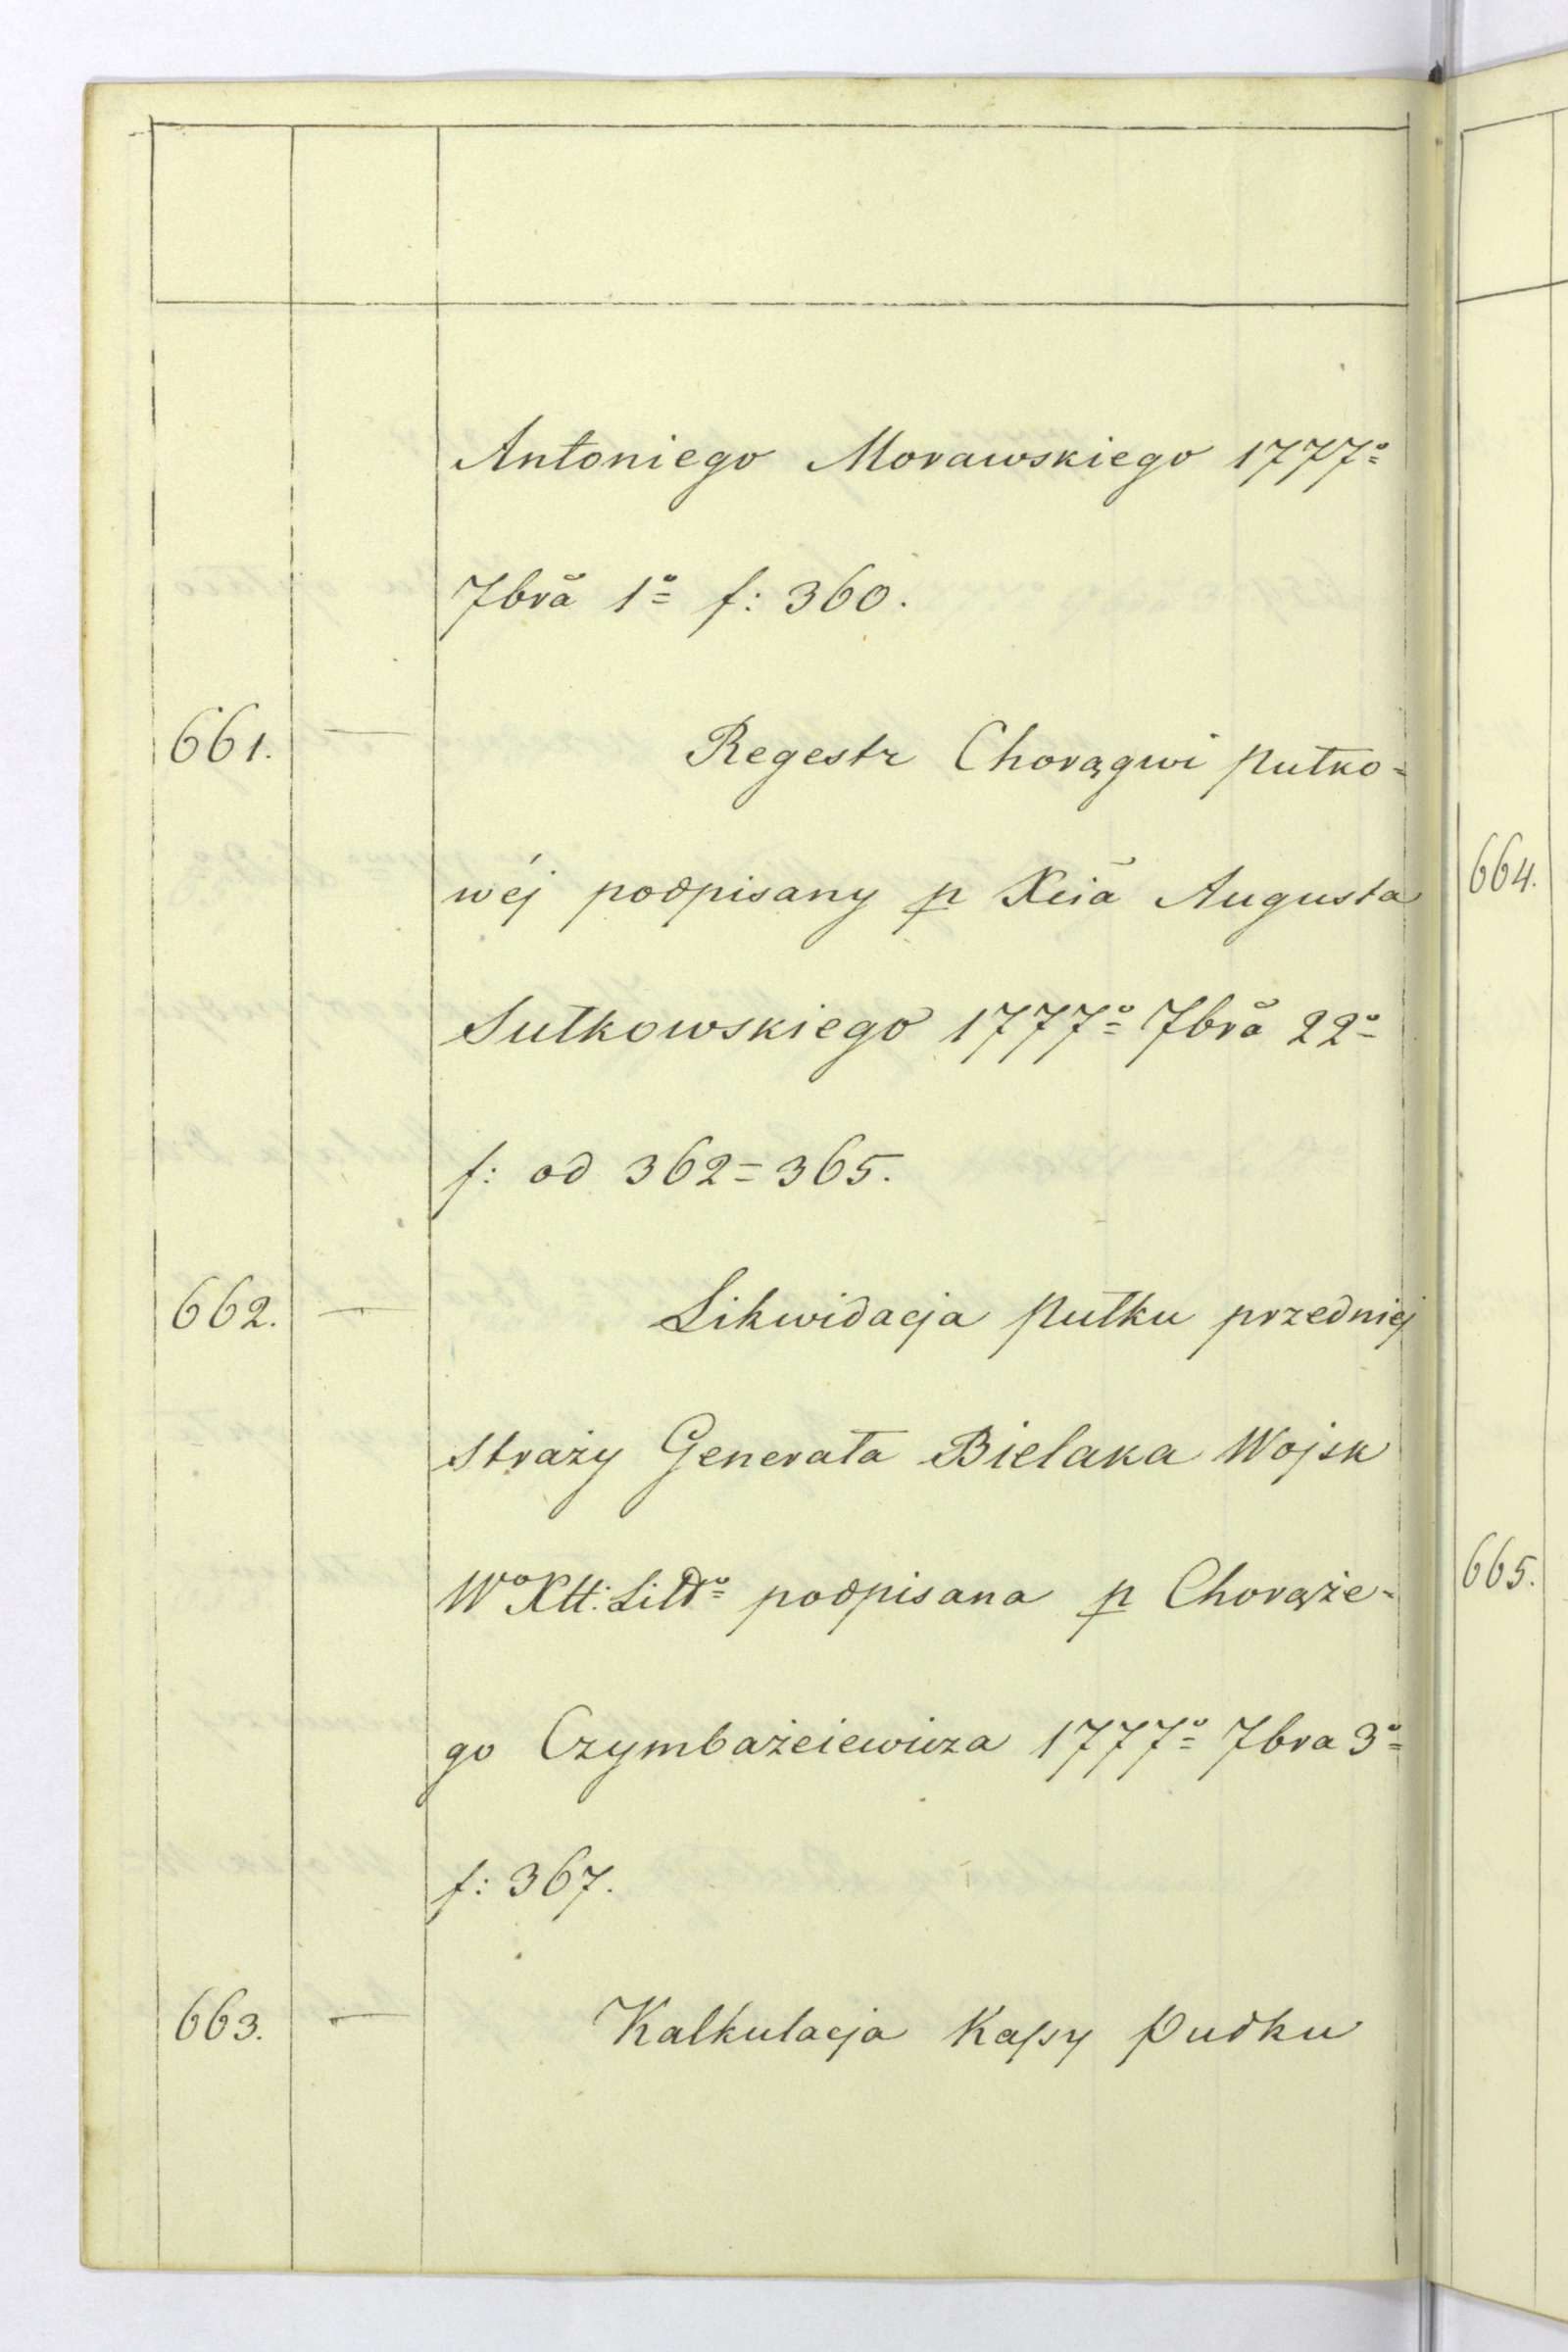 Antoniego Morawskiego 1777º
7brã 1º f: 360.
661. — Regestr Chorągwi Pułko=
wéj podpisany p Xcia Augusta
Sułkowskiego 1777º 7brã 22º
f: od 362=365.
662. — Likwidacja Pułku przedniej
Straży Generała Bielaka Wojsk
podpisana p Chorąże-
go Czymbażeiewicza 1777º 7bra 3º
f: 367.
663. — Kalkulacja Kassy Pułku
664.
665.